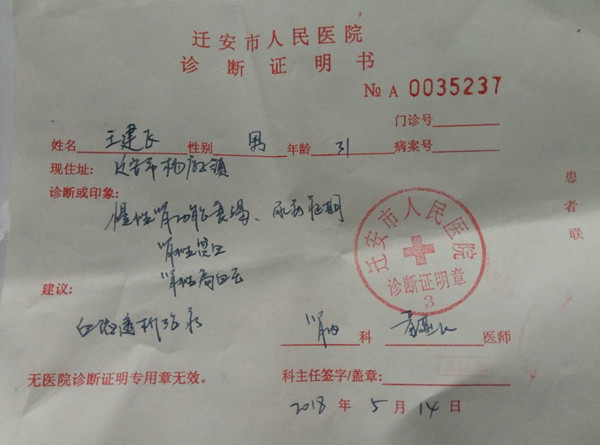 迁安市人民医院
诊断证明书
№ A 0035237
门诊号
姓名 王建飞 性别 男 年龄 31 病案号
现住址: 迁安市杨店子镇
诊断或印象:
慢性肾功能衰竭、尿毒症期
肾性贫血
肾性高血压
患者联
迁安市人民医院
诊断证明章
3
建议:
血液透析治疗
肾内 科 医师
无医院诊断证明专用章无效。
科主任签字/盖章:
2018 年 5 月 14 日